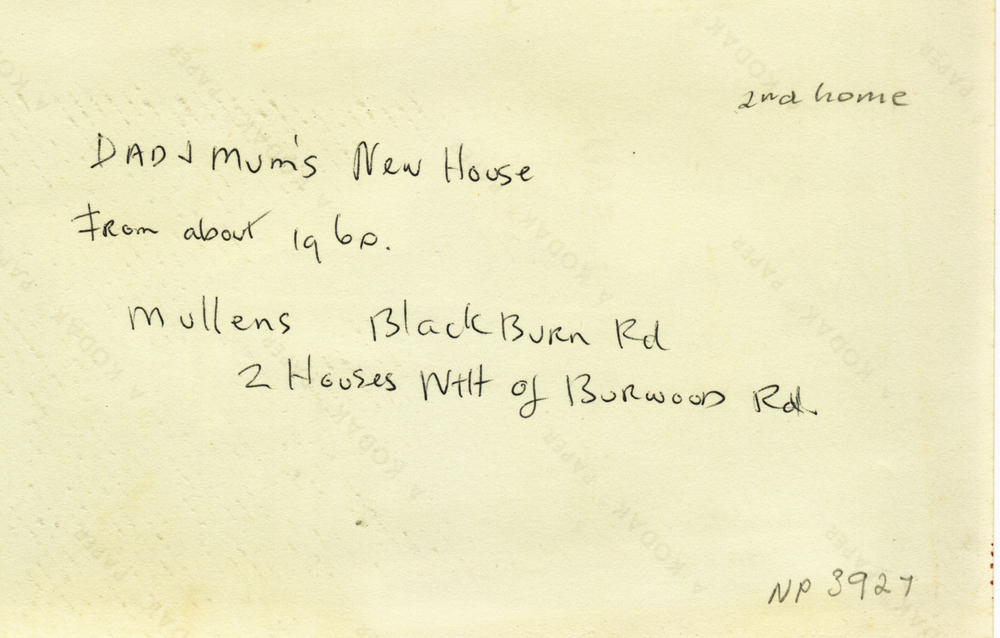 2nd home
DAD & Mum's New House
From about 1960.
Mullens BlackBurn Rd
2 Houses Nth of Burwood Rd.
NP 3927
A KODAK PAPER